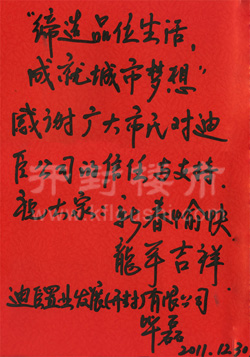 “缔造品位生活,
成就城市梦想”
感谢广大市民对迪
臣公司的信任与支持.
祝大家 新春愉快
龍年吉祥
迪臣置业发展(开封)有限公司
毕磊
2011.12.30